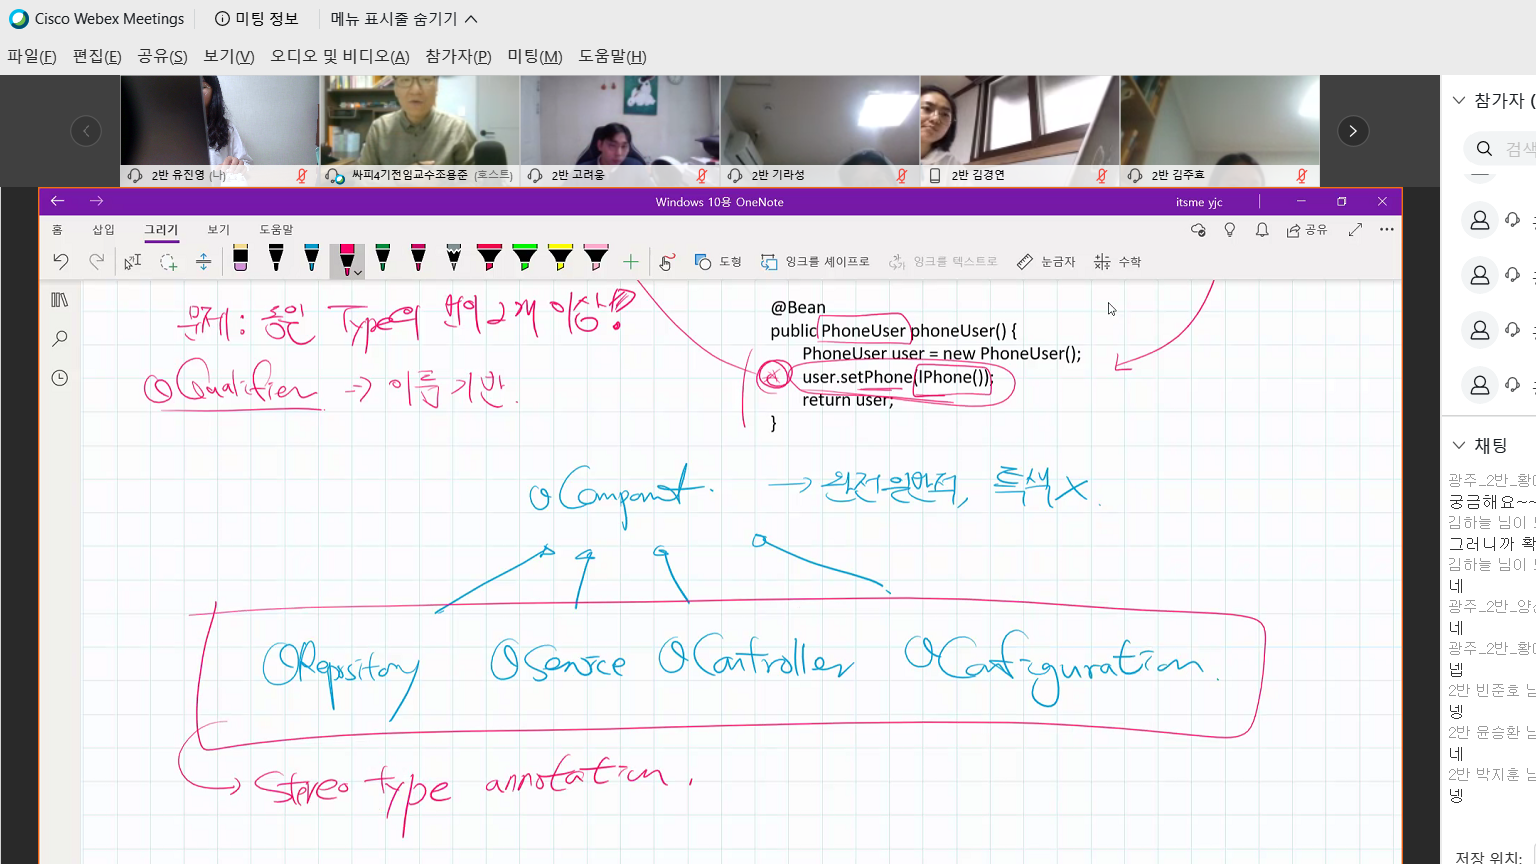 Cisco Webex Meetings 미팅 정보 메뉴 표시줄 숨기기
파일(F) 편집(E) 공유(S) 보기(V) 오디오 및 비디오(A) 참가자(P) 미팅(M) 도움말(H)
2반 유진영 (나) 싸피4기전임교수조용준 (호스트) 2반 고려웅 2반 기라성 2반 김경연 2반 김주효
Windows 10용 OneNote itsme yjc
홈 삽입 그리기 보기 도움말 공유
도형 잉크를 셰이프로 잉크를 텍스트로 눈금자 수학
문제: 동일 Type의 빈이 2개 이상?
@Qualifier → 이름 기반.
@Bean
public PhoneUser phoneUser() {
PhoneUser user = new PhoneUser();
user.setPhone(IPhone());
return user;
}
@Component. → 완전 일반적, 특색 X.
@Repository @Service @Controller @Configuration.
→ Stereo type annotation.
참가자 (
검색
채팅
광주_2반_황
궁금해요~~
김하늘 님이
그러니까 확
김하늘 님이
네
광주_2반_양
네
광주_2반_황
넵
2반 빈준호 님
넹
2반 윤승환 님
네
2반 박지훈 님
넹
저장 위치: